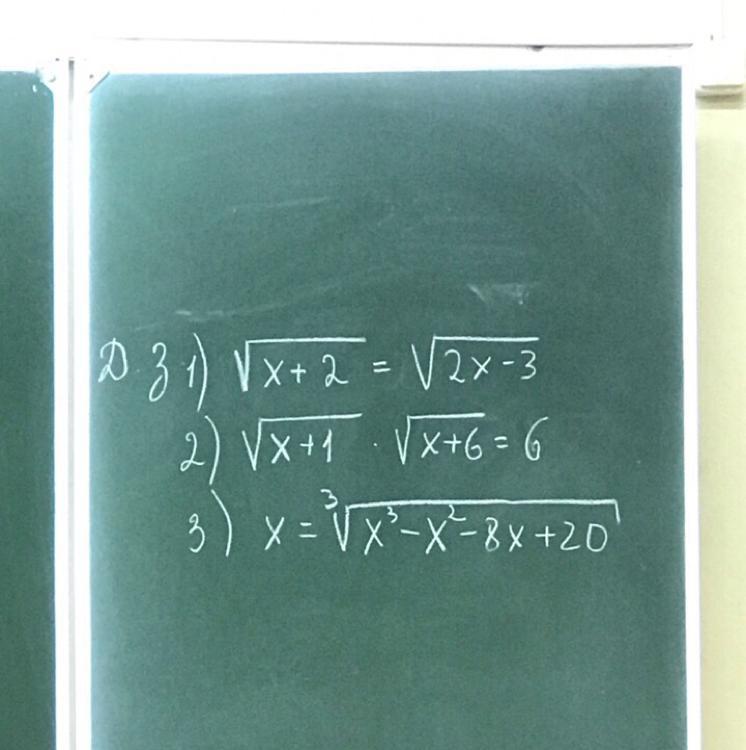 Д.З 1) √x+2 = √2x-3
2) √x+1 · √x+6 = 6
3) x = ³√x³-x²-8x+20